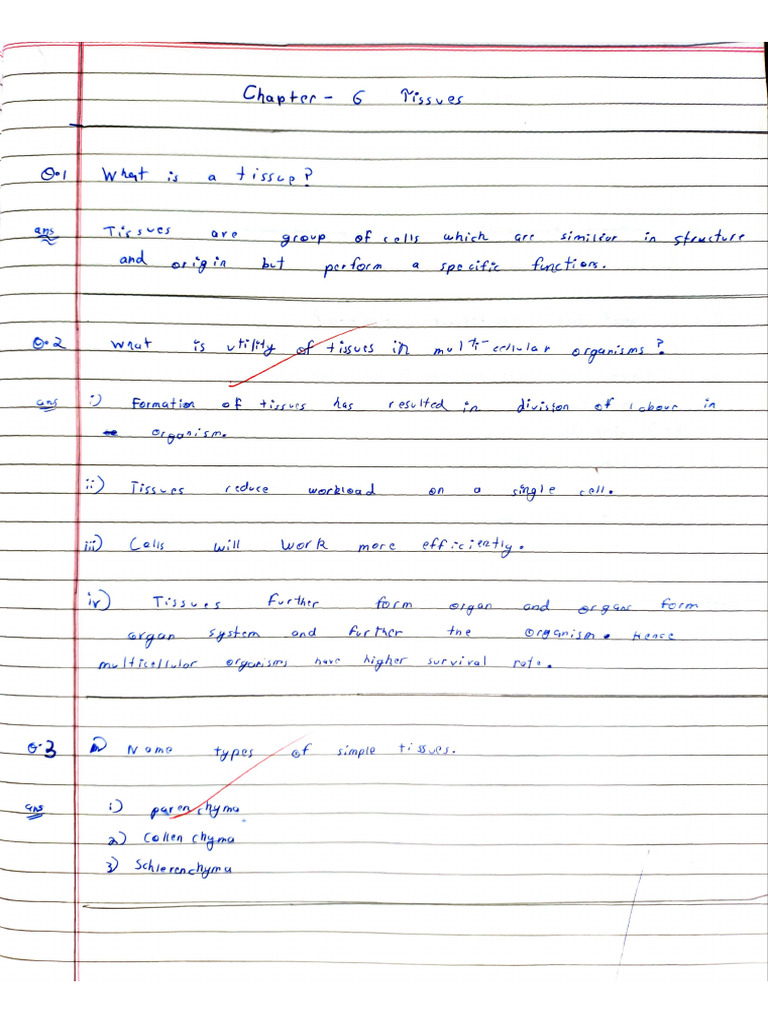 Chapter - 6 Tissues
Q.1 What is a tissue?
ans Tissues are group of cells which are similier in structure
and origin but perform a specific functions.
Q.2 What is utility of tissues in multi-cellular organisms?
ans i) Formation of tissues has resulted in division of labour in
organism.
ii) Tissues reduce workload on a single cell.
iii) Cells will work more efficiently.
iv) Tissues further form organ and organs form
organ system and further the organism. Hence
multicellular organisms have higher survival rate.
Q.3 Name types of simple tissues.
ans 1) parenchyma
2) Collenchyma
3) Schlerenchyma